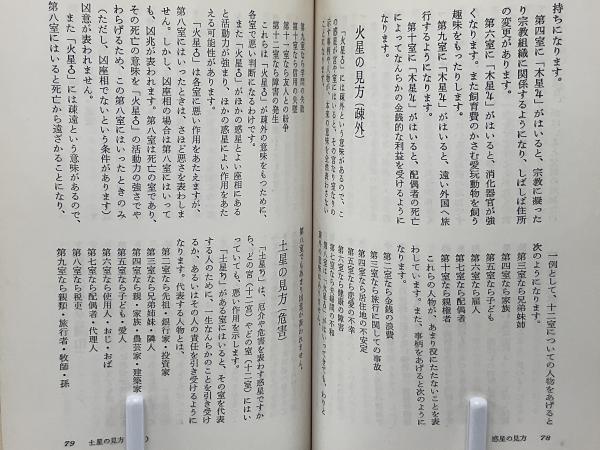 持ちになります。
第四室に「木星♃」がはいると、宗教に凝った
り宗教組織に関係するようになり、しばしば住所
の変更があります。
第六室に「木星♃」がはいると、消化器官が強
くなります。また飼育費のかさむ愛玩動物を飼う
趣味をもったりします。
第九室に「木星♃」がはいると、遠い外国へ旅
行するようになります。
第十室に「木星♃」がはいると、配偶者の死亡
によってなんらかの金銭的な利益を受けるように
なります。
火星の見方(疎外)
「火星♂」には疎外という意味があるので、こ
の惑星が宮の室にはいると、その宮なり室なりの
一例として、十二室についての人物をあげると
次のようになります。
第三室なら兄弟姉妹
第四室なら家族
第五室なら子ども
第六室なら雇人
第七室なら配偶者
第十室なら親権者
これらの人物が、あまり役にたたないことを表
わしています。また、事柄をあげると次のように
なります。
第二室なら金銭の浪費
第三室なら旅行に関しての事故
第四室なら居住地の不安定
第五室なら恋愛の不幸
第六室なら健康の障害
第七室なら夫婦間の不和
惑星の見方 78
第九室なら学問の失敗
第十室なら信用の失墜
第十一室なら友人との紛争
第十二室なら障害の発生
これらは「火星♂」が疎外の意味をもつために、
各室で悪い判断になるわけです。
また「火星♂」がほかの惑星とよい座相にある
と活動力が強まり、ほかの惑星によい作用をあた
える可能性があります。
「火星♂」は各室に悪い作用をあたえますが、
第八室にはいったときは、さほど悪さを表わしま
せん。しかし、凶座相の場合は第八室にはいって
も、凶兆が表われます。第八室は死亡の室であり、
その死亡の意味を「火星♂」の活動力の強さでや
わらげるため、この第八室にはいったときのみ
(ただし、凶座相でないという条件があります)
凶意が表われません。
また「火星♂」には疎遠という意味があるので、
第八室にはいると死亡から遠ざかることになり、
土星の見方(危害)
「土星♄」は、厄介や危害を表わす惑星ですか
ら、どの宮(十二宮)やどの室(十二室)にはい
っていても、悪い作用を示します。
「土星♄」がある室にはいると、その室を代表
する人のために、一生なんらかのことを引き受け
るか、あるいはその人の責任を引き受けるように
なります。代表する人物とは、
第二室なら先祖・銀行家・投資家
第三室なら兄弟姉妹・隣人
第四室なら親・家族・農芸家・建築家
第五室なら子ども・愛人
第六室なら使用人・おじ・おば
第七室なら配偶者・代理人
第八室なら税吏
第九室なら親類・旅行者・牧師・孫
79 土星の見方